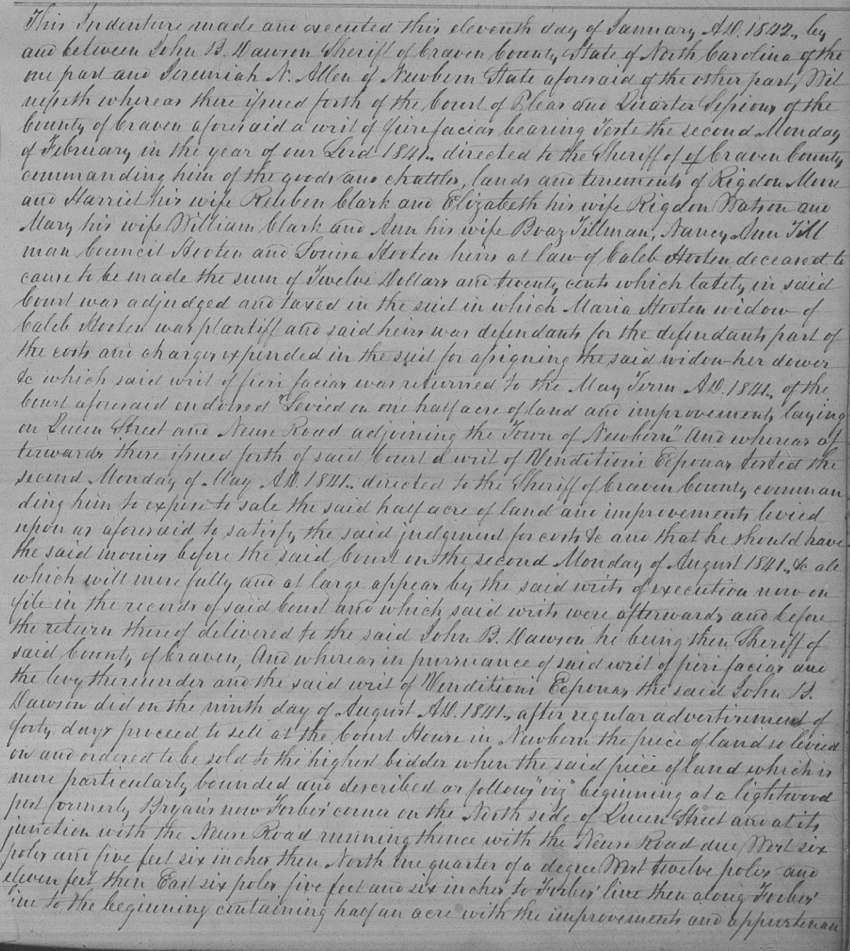 This Indenture made and executed this eleventh day of January A.D. 1842, by
and between John B. Dawson Sheriff of Craven County State of North Carolina of the
one part and Jeremiah N. Allen of Newbern State aforesaid of the other part, Wit
nesseth whereas there issued forth of the Court of Pleas and Quarter Sessions of the
County of Craven aforesaid a writ of fieri facias bearing Teste the second Monday
of February in the year of our Lord 1841, directed to the Sheriff of of Craven County
commanding him of the goods and chattles, lands and tenements of Rigdon More
and Harriet his wife Reuben Clark and Elizabeth his wife Rigdon Watson and
Mary his wife William Clark and Ann his wife Boaz Tillman, Nancy Ann Till
man Council Hooten and Louisa Hooten heirs at law of Caleb Hooten deceased to
cause to be made the sum of Twelve Dollars and twenty cents which lately in said
Court was adjudged and taxed in the suit in which Maria Hooten widow of
Caleb Hooten was plantiff and said heirs was defendants for the defendants part of
the costs and charges expended in the suit for assigning the said widow her dower
&c which said writ of fieri facias was returned to the May Term A.D. 1841, of the
Court aforesaid endorsed "Levied on one half acre of land and improvements laying
on Queen Street and Neuse Road adjoining the Town of Newbern" And whereas af
terwards there issued forth of said Court a writ of Venditioni Exponas tested the
second Monday of May A.D. 1841, directed to the Sheriff of Craven County comman
ding him to expose to sale the said half acre of land and improvements levied
upon as aforesaid to satisfy the said judgment for costs &c and that he should have
the said monies before the said Court on the second Monday of August 1841, &c all
which will more fully and at large appear by the said writs of execution now on
file in the records of said Court and which said writs were afterwards and before
the return thereof delivered to the said John B. Dawson he being then Sheriff of
said County of Craven, And whereas in pursuance of said writ of fieri facias and
the levy thereunder and the said writ of Venditioni Exponas the said John B.
Dawson did on the ninth day of August A.D. 1841, after regular advertisement of
forty days proceed to sell at the Court House in Newbern the piece of land so levied
on and ordered to be sold to the highest bidder when the said piece of land which is
more particularly bounded and described as follows "viz" beginning at a lightwood
post formerly Bryan's now Forbes' corner on the North side of Queen Street and at its
junction with the Neuse Road running thence with the Neuse Road due West six
poles and five feet six inches then North one quarter of a degree West twelve poles and
eleven feet, then East six poles five feet and six inches to Forbes' line then along Forbes'
line to the beginning containing half an acre with the improvements and appurtenan